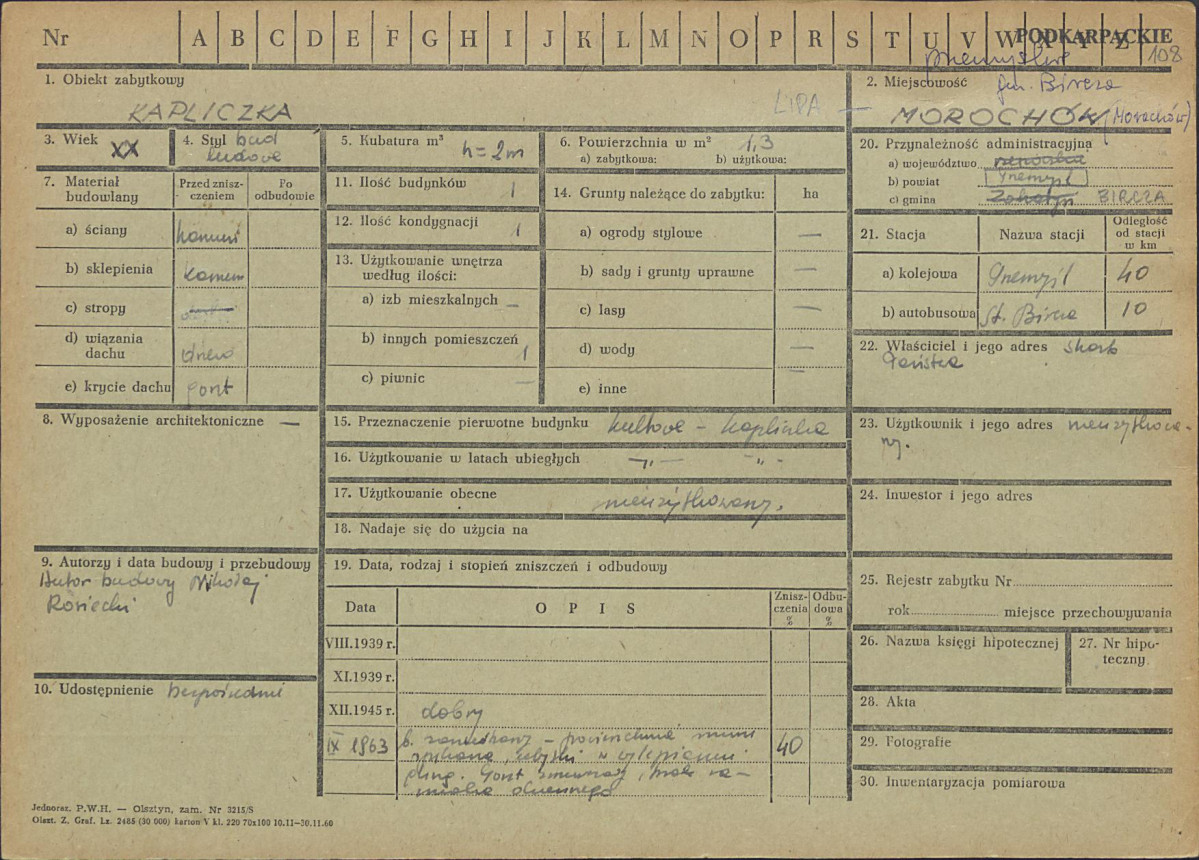 Nr A B C D E F G H I J K L M N O P R S T U V W X Y Z
PODKARPACKIE
108
przemyskie
1. Obiekt zabytkowy
KAPLICZKA
LIPA —
2. Miejscowość gm. Bircza
MOROCHÓW (Morachów)
3. Wiek XX
4. Styl bud
ludowe
5. Kubatura m³ h = 2m
6. Powierzchnia w m² 1,3
a) zabytkowa: b) użytkowa:
7. Materiał budowlany
Przed zniszczeniem
Po odbudowie
a) ściany kamień
b) sklepienia kamień
c) stropy
d) wiązania dachu drewo
e) krycie dachu gont
8. Wyposażenie architektoniczne —
9. Autorzy i data budowy i przebudowy
Autor budowy Mikołaj
Rosiecki
10. Udostępnienie bezpośrednie
11. Ilość budynków 1
12. Ilość kondygnacji 1
13. Użytkowanie wnętrza
według ilości:
a) izb mieszkalnych —
b) innych pomieszczeń 1
c) piwnic —
14. Grunty należące do zabytku: ha
a) ogrody stylowe —
b) sady i grunty uprawne —
c) lasy —
d) wody —
e) inne —
15. Przeznaczenie pierwotne budynku kultowe – kapliczka
16. Użytkowanie w latach ubiegłych —„— -„-
17. Użytkowanie obecne nieużytkowany.
18. Nadaje się do użycia na
19. Data, rodzaj i stopień zniszczeń i odbudowy
Data OPIS Zniszczenia % Odbudowa %
VIII.1939 r.
XI.1939 r.
XII.1945 r. dobry
IX 1963 b. zaniedbany – powierzchnia muru 40
ubytki w sklepieniu
Gont zmurszały, brak
20. Przynależność administracyjna
a) województwo rzeszowskie
b) powiat Przemyśl
c) gmina BIRCZA
21. Stacja Nazwa stacji Odległość
od stacji
w km
a) kolejowa Przemyśl 40
b) autobusowa St. Bircza 10
22. Właściciel i jego adres Skarb
Państwa
23. Użytkownik i jego adres nieużytkowa-
ny.
24. Inwestor i jego adres
25. Rejestr zabytku Nr
rok miejsce przechowywania
26. Nazwa księgi hipotecznej
27. Nr hipo-
teczny
28. Akta
29. Fotografie
30. Inwentaryzacja pomiarowa
Jednoraz. P.W.H. — Olsztyn, zam. Nr 3215/S
Olszt. Z. Graf. Lz. 2485 (30 000) karton V kl. 220 70x100 10.11—30.11.60